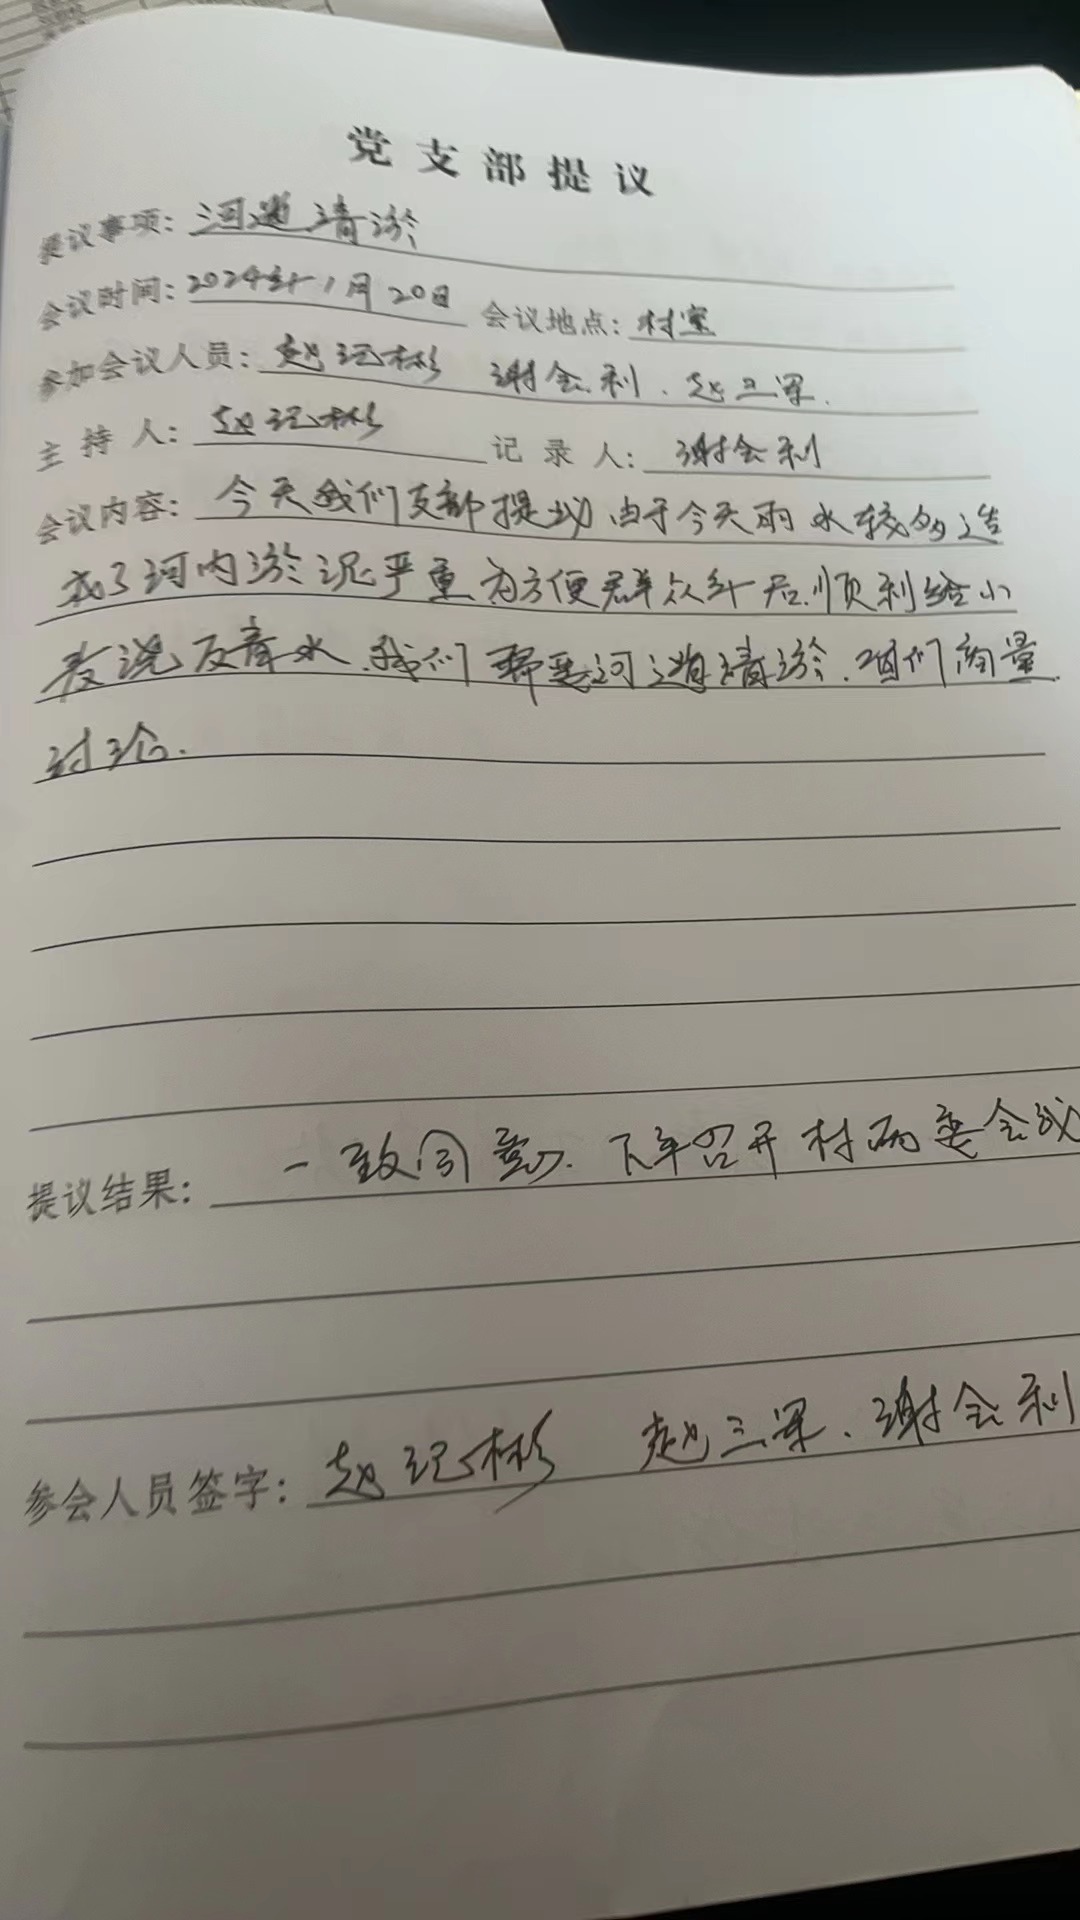 党支部提议
提议事项：河道清淤
会议时间：2024年1月20日 会议地点：村室
参加会议人员：赵记彬 谢会利、赵三军.
主持人：赵记彬 记录人：谢会利
会议内容：今天我们支部提议，由于今天雨水较多造
成了河内淤泥严重，为方便群众年后顺利给小
麦浇返青水，我们需要河道清淤，咱们商量
讨论.
提议结果：一致同意. 下午召开村两委会议
参会人员签字：赵记彬 赵三军、谢会利